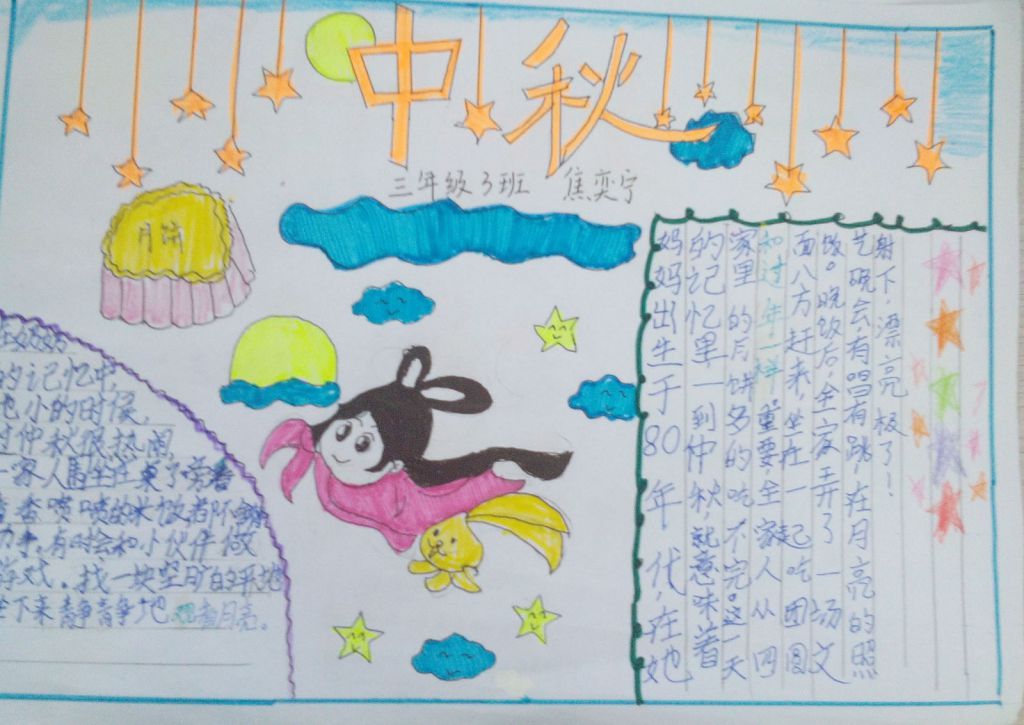 中秋
三年级3班 焦奕宁
月饼
奶奶
的记忆中,
小的时候,
过仲秋很热闹,
一家人围坐在桌子旁
香喷喷的米饭都不
有时会和小伙伴做
游戏,找一块空旷的平地
坐下来静静地看月亮。
妈妈出生于80年代,在她
的记忆里一到仲秋,就意味着
家里的月饼多的吃不完。这一天
和过年一样重要全家人从四
面八方赶来,坐在一起吃团圆
饭。晚饭后全家弄了一场文
艺晚会,有唱有跳在月亮的照
射下,漂亮极了!